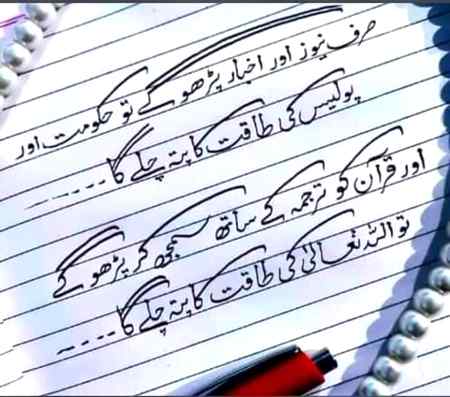 صرف نیوز اور اخبار پڑھو گے تو حکومت اور
پولیس کی طاقت کا پتہ چلے گا.....
اور قرآن کو ترجمہ کے ساتھ سمجھ کر پڑھو گے
تو اللہ تعالیٰ کی طاقت کا پتہ چلے گا....